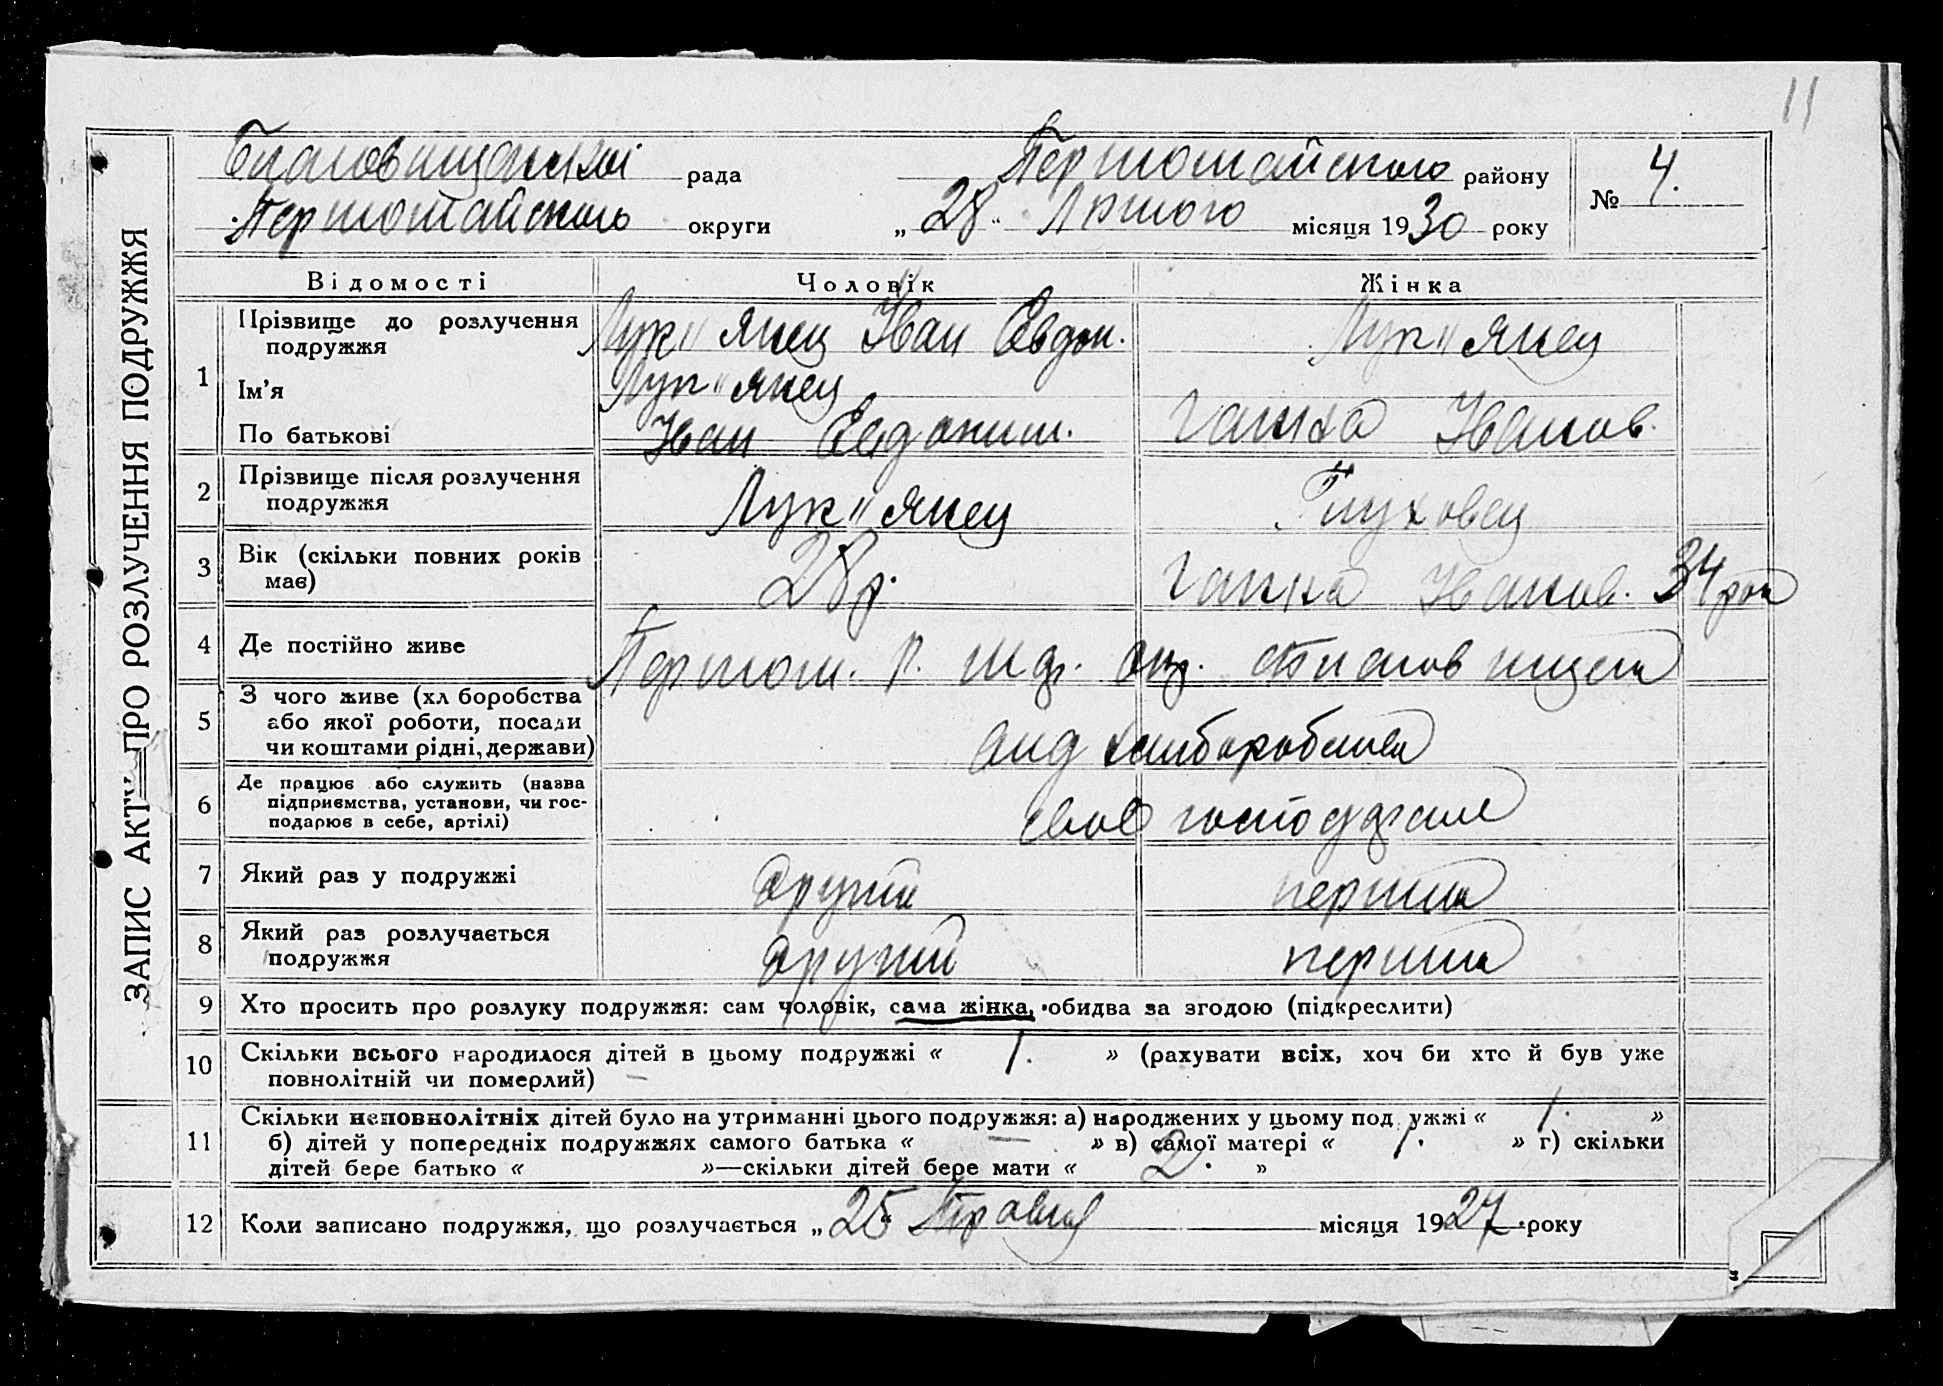 11
ЗАПИС АКТУ ПРО РОЗЛУЧЕННЯ ПОДРУЖЖЯ
рада Першомайського району № 4.
Першомайского округи „ 28 “ Лютого місяця 1930 року
Відомості Чоловік Жінка
1 Прізвище до розлучення подружжя Лук"янец Іван Евдок. Лук"янец
Ім’я Лук"янец
По батькові Іван Евдоким. Ганна Іванов.
2 Прізвище після розлучення
подружжя Лук"янец Глуховец
3 Вік (скільки повних років
має) 28 р. Ганна Іванов. 34 рок
4 Де постійно живе Першом. р.
5 З чого живе (хліборобства
або якої роботи, посади
чи коштами рідні, держави) хлиборобства
6 Де працює або служить (назва
підприємства, установи, чи гос-
подарює в себе, артілі) своє
7 Який раз у подружжі другий перший
8 Який раз розлучається
подружжя другий перший
9 Хто просить про розлуку подружжя: сам чоловік, сама жінка, обидва за згодою (підкреслити)
10 Скільки всього народилося дітей в цьому подружжі « 1. » (рахувати всіх, хоч би хто й був уже
повнолітній чи померлий) —
11 Скільки неповнолітніх дітей було на утриманні цього подружжя: а) народжених у цьому подружжі « 1. »
б) дітей у попередніх подружжях самого батька « — » в) самої матері « 1. » г) скільки
дітей бере батько « »—скільки дітей бере мати « 2. »
12 Коли записано подружжя, що розлучається „ 25 “ Травня місяця 1927 року